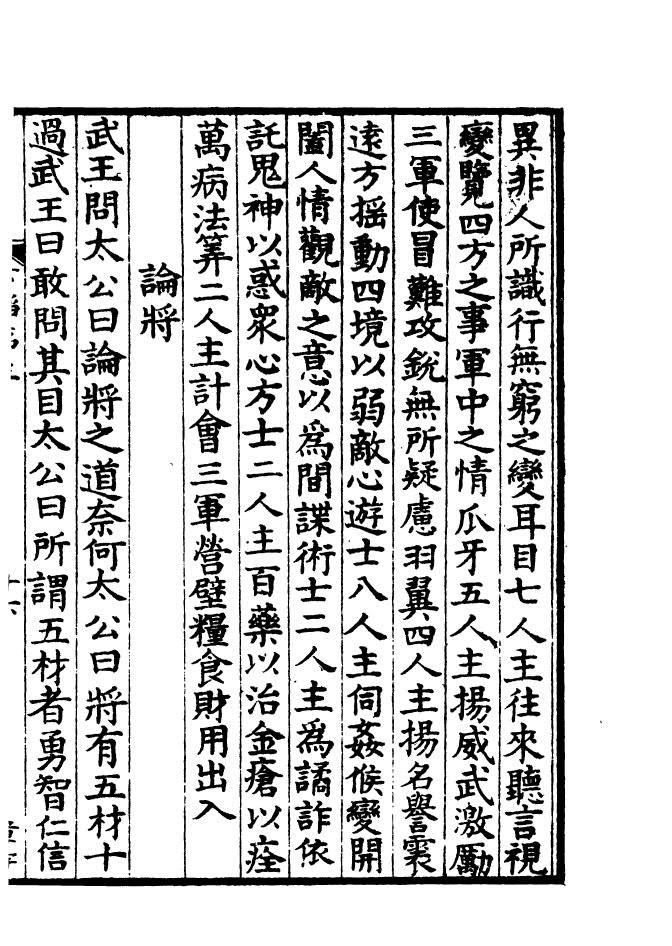 異非人所識行無窮之變耳目七人主往來聽言視
變覽四方之事軍中之情爪牙五人主揚威武激勵
三軍使冒難攻銳無所疑慮羽翼四人主揚名譽震
遠方揺動四境以弱敵心遊士八人主伺姦候變開
闔人情觀敵之意以為間諜術士二人主為譎詐依
託鬼神以惑衆心方士二人主百藥以治金瘡以痊
萬病法筭二人主計會三軍營壁糧食財用出入
論將
武王問太公曰論將之道奈何太公曰將有五材十
過武王曰敢問其目太公曰所謂五材者勇智仁信